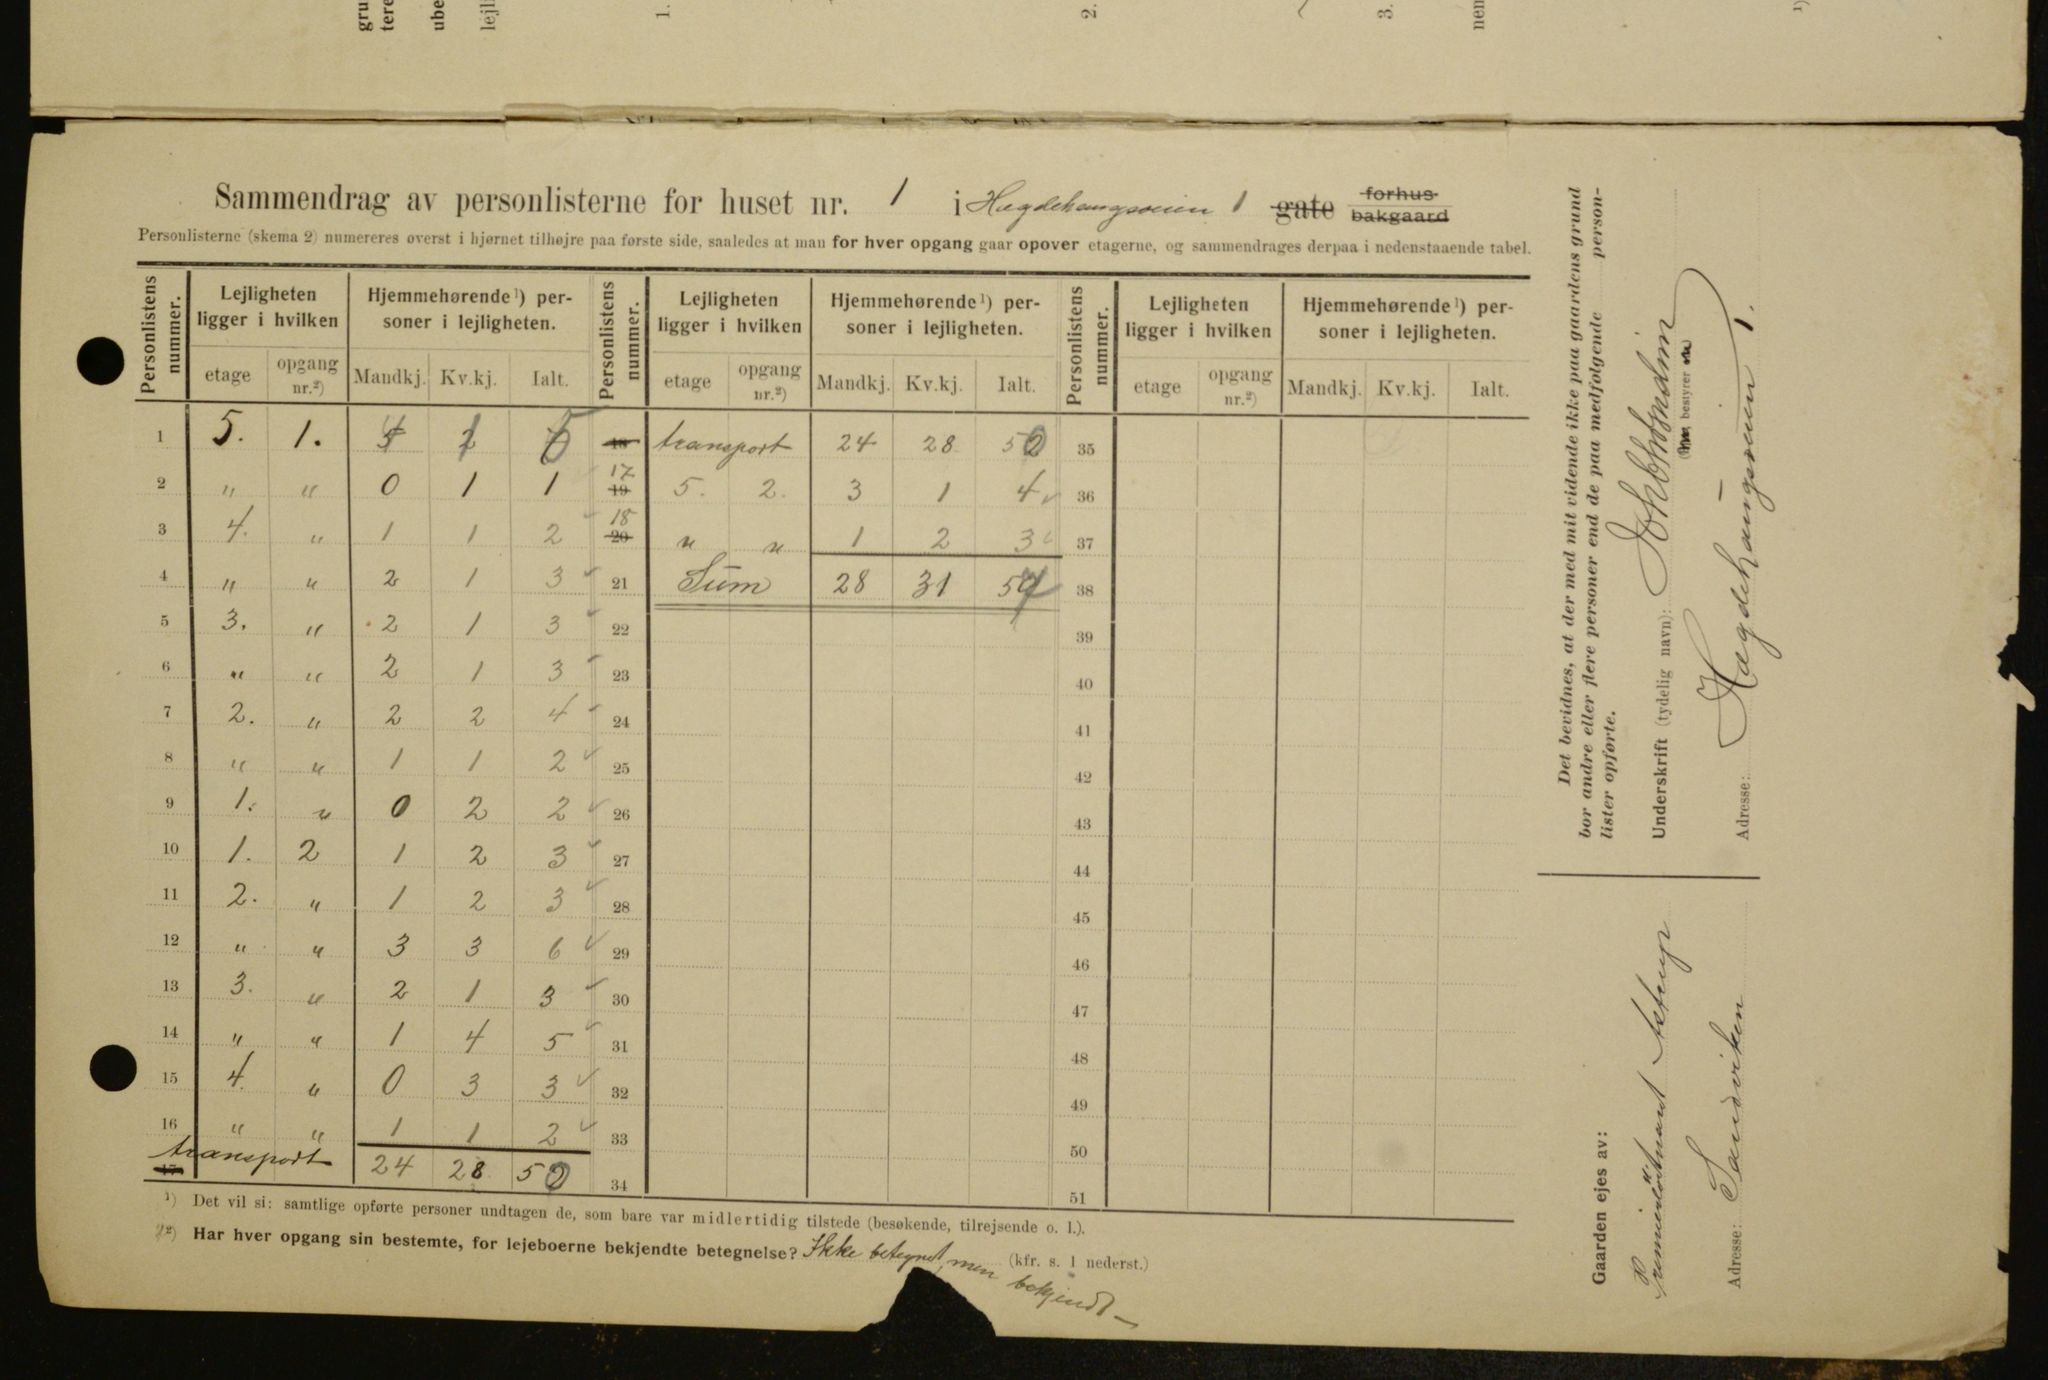 gru
tere
ube
lejl
1.
2.
3.
nen
1)
Sammendrag av personlisterne for huset nr. 1 i Hægdehaugsveien 1 gate forhus bakgaard
Personlisterne (skema 2) numereres øverst i hjørnet tilhøjre paa første side, saaledes at man for hver opgang gaar opover etagerne, og sammendrages derpaa i nedenstaaende tabel.
Personlistens nummer. Lejligheten ligger i hvilken Hjemmehørende ¹) personer i lejligheten. Personlistens nummer. Lejligheten ligger i hvilken Hjemmehørende ¹) personer i lejligheten. Personlistens nummer. Lejligheten ligger i hvilken Hjemmehørende ¹) personer i lejligheten.
etage opgang nr.²) Mandkj. Kv.kj. Ialt. etage opgang nr.²) Mandkj. Kv.kj. Ialt. etage opgang nr.²) Mandkj. Kv.kj. Ialt.
1 5. 1. 4 1 5 18 transport 24 28 50 35
2 " " 0 1 1 17 19 5. 2. 3 1 4 36
3 4. " 1 1 2 18 20 " " 1 2 3 37
4 " " 2 1 3 21 Sum 28 31 57 38
5 3. " 2 1 3 22 39
6 " " 2 1 3 23 40
7 2. " 2 2 4 24 41
8 " " 1 1 2 25 42
9 1. " 0 2 2 26 43
10 1. 2 1 2 3 27 44
11 2. " 1 2 3 28 45
12 " " 3 3 6 29 46
13 3. " 2 1 3 30 47
14 " " 1 4 5 31 48
15 4. " 0 3 3 32 49
16 " " 1 1 2 33 50
17 transport 24 28 50 34 51
¹) Det vil si: samtlige opførte personer undtagen de, som bare var midlertidig tilstede (besøkende, tilrejsende o. l.).
²) Har hver opgang sin bestemte, for lejeboerne bekjendte betegnelse? Ikke betegnet, men bekjendt — (kfr. s. 1 nederst.)
Det bevidnes, at der med mit vidende ikke paa gaardens grund
bor andre eller flere personer end de paa medfølgende person-
lister opførte.
Underskrift (tydelig navn):
bestyrer
Adresse: Hægdehaugsveien 1.
Gaarden ejes av:
Premierløitnant Astrup
Adresse: Sandviken